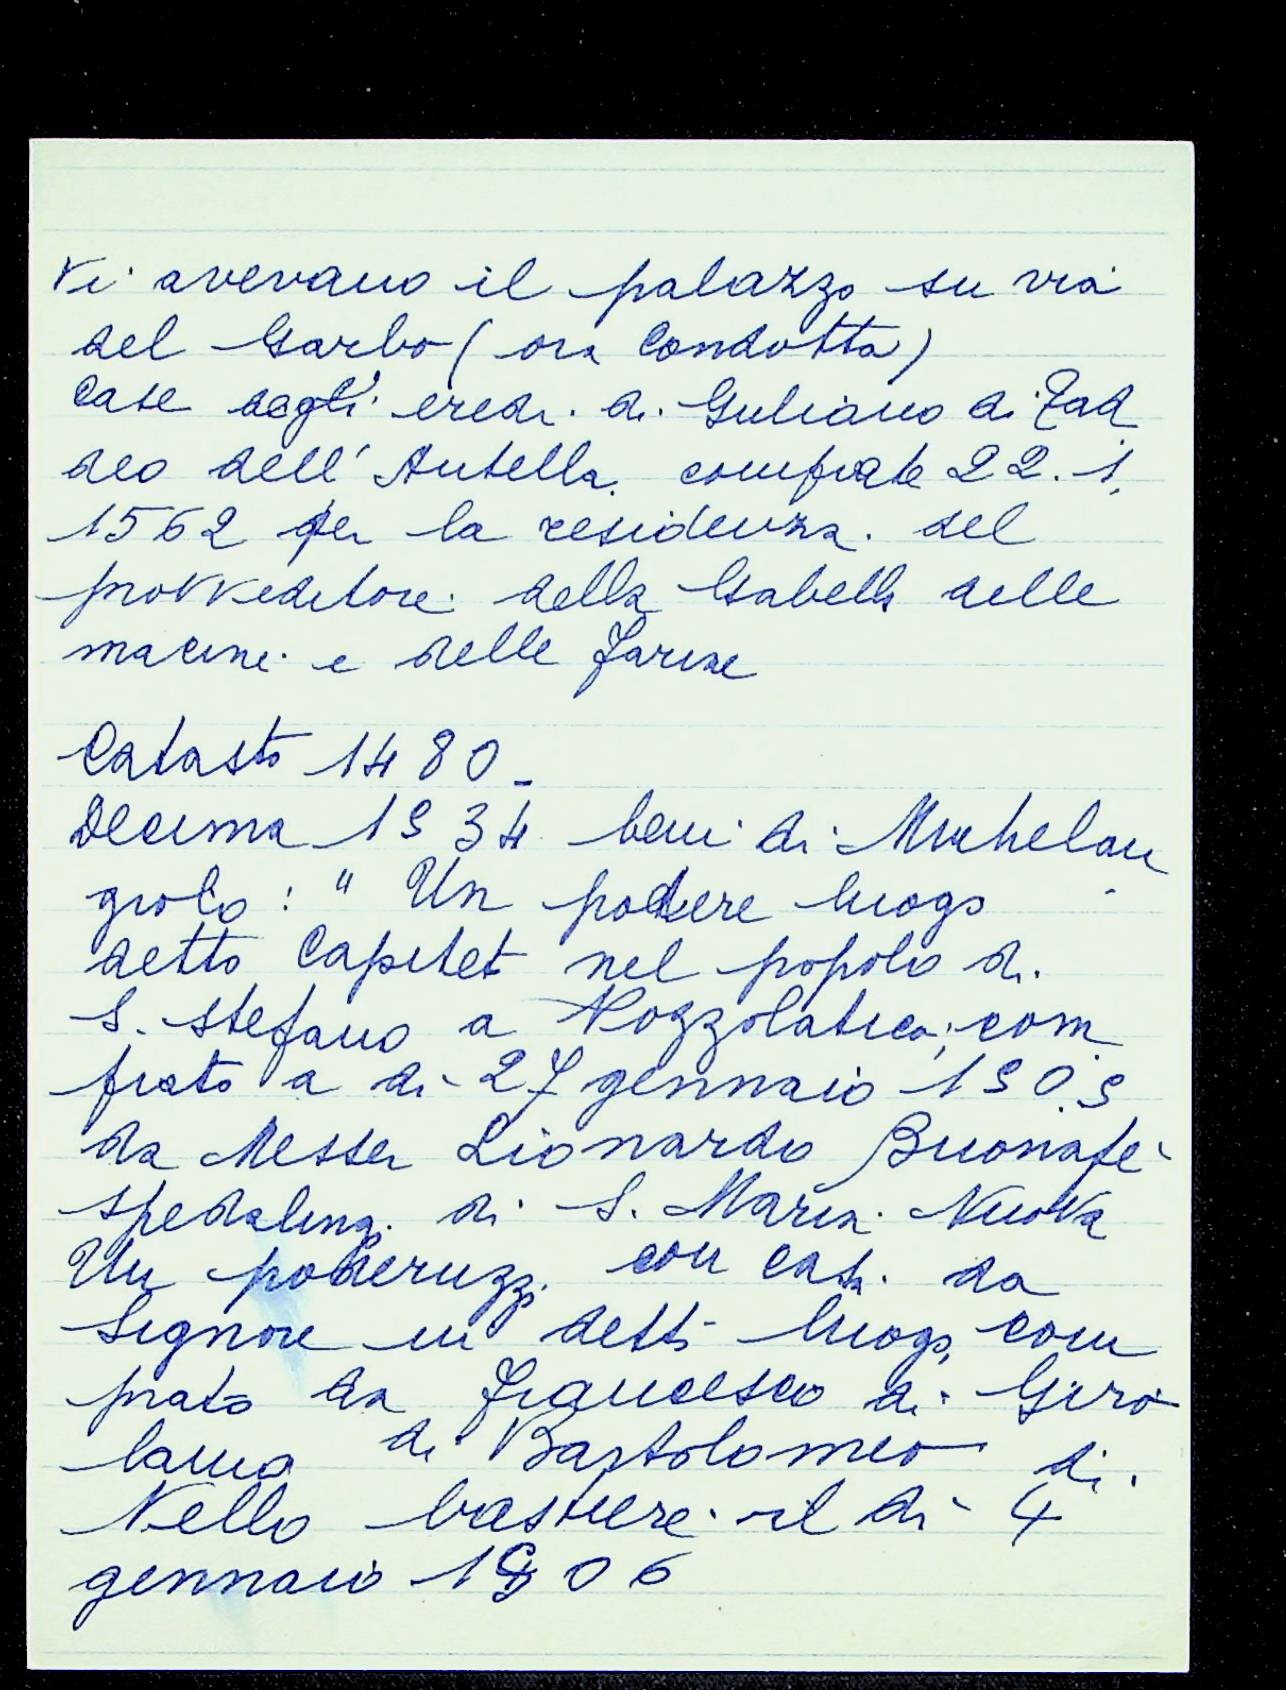 Vi avevano il palazzo su via
del Garbo (ora Condotta)
Case degli eredi di Guliano di Tad
deo dell'Antella comprate 22.1.
1562 per la residenza del
provveditore della Gabella delle
macine e delle farine
Catasto 1480 -
Decima 1534 beni di Michelan
giolo: " Un podere luogo
detto Capiteto nel popolo di
S. Stefano a Pozzolatico; com
prato a dì 27 gennaio 1505
da Messer Lionardo Buonafè
spedalingo di S. Maria Nuova
Un poderuzzo con casa da
Signore in detto luogo, com
prato da Francesco di Giro
lamo di Bartolomeo di
Nello bastiere il dì 4
gennaio 1506